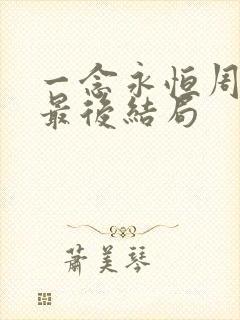 一念永恒周
最後結局
蕭美琴